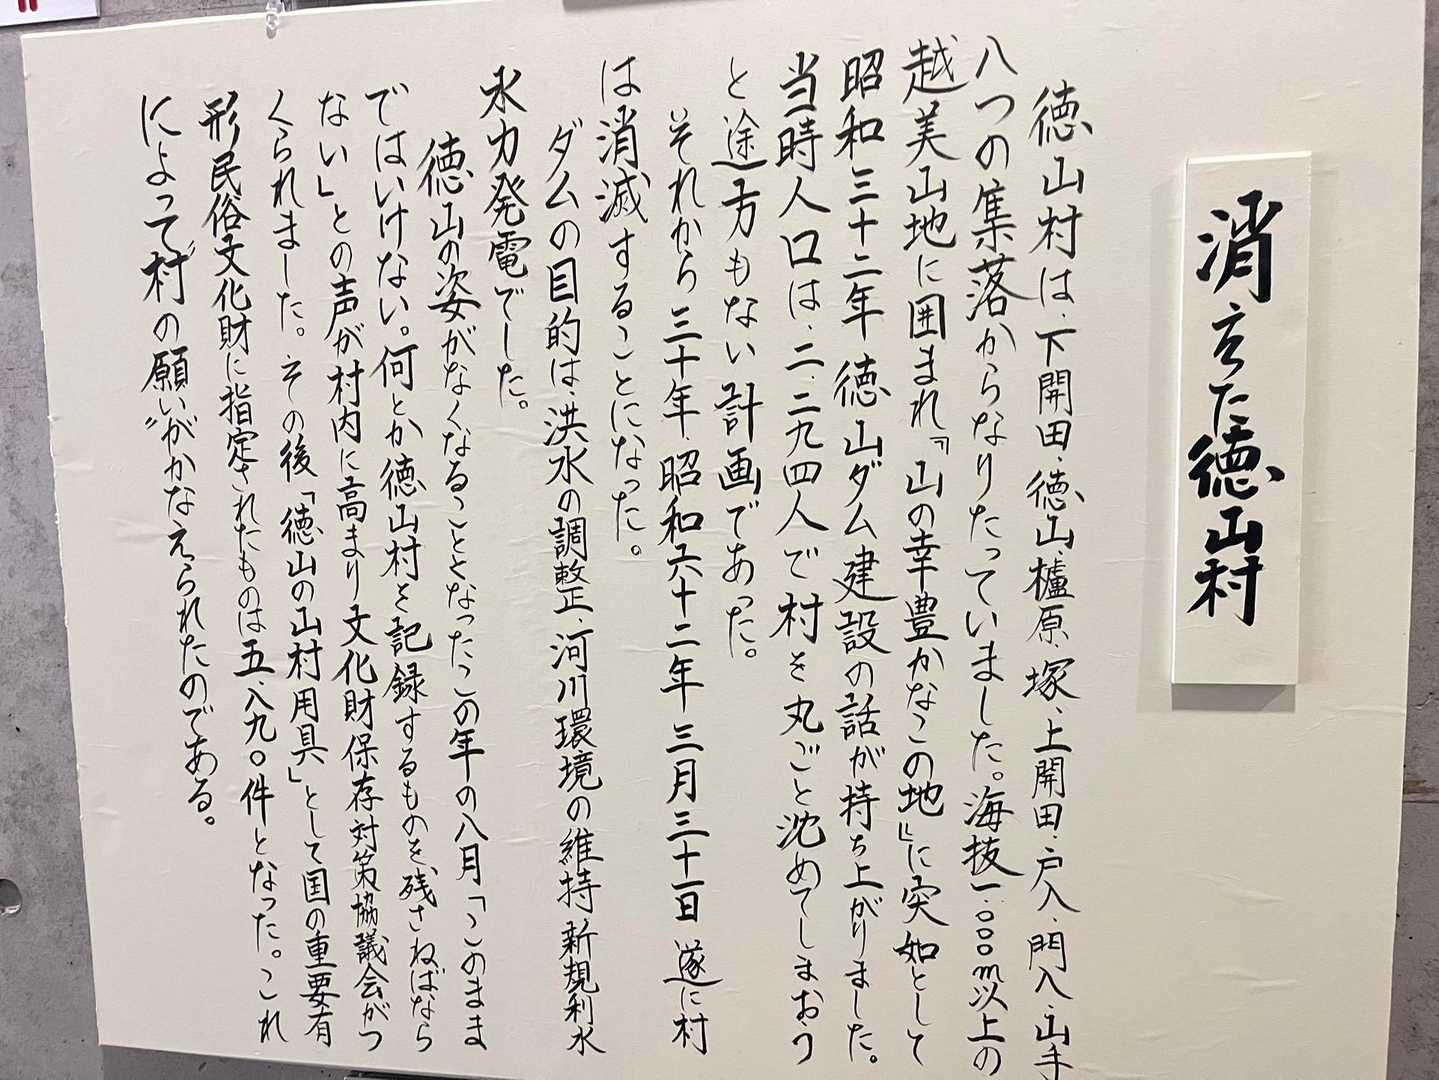 消えた徳山村
徳山村は、下開田、徳山、櫨原、塚、上開田、戸入、門入、山手
八つの集落からなりたっていました。海抜一、〇〇〇m以上の
越美山地に囲まれ『山の幸豊かなこの地』に突如として
昭和三十二年徳山ダム建設の話が持ち上がりました。
当時人口は、二、二九四人で村を丸ごと沈めてしまおう
と途方もない計画であった。
それから三十年、昭和六十二年三月三十一日遂に村
は消滅することになった。
ダムの目的は、洪水の調整、河川環境の維持、新規利水
水力発電でした。
徳山の姿がなくなることとなったこの年の八月「このまま
ではいけない。何とか徳山村を記録するものを残さねばなら
ない」との声が村内に高まり文化財保存対策協議会がつ
くられました。その後「徳山の山村用具」として国の重要有
形民俗文化財に指定されたものは五、八九〇件となった。これ
によって〝村の願い〟がかなえられたのである。